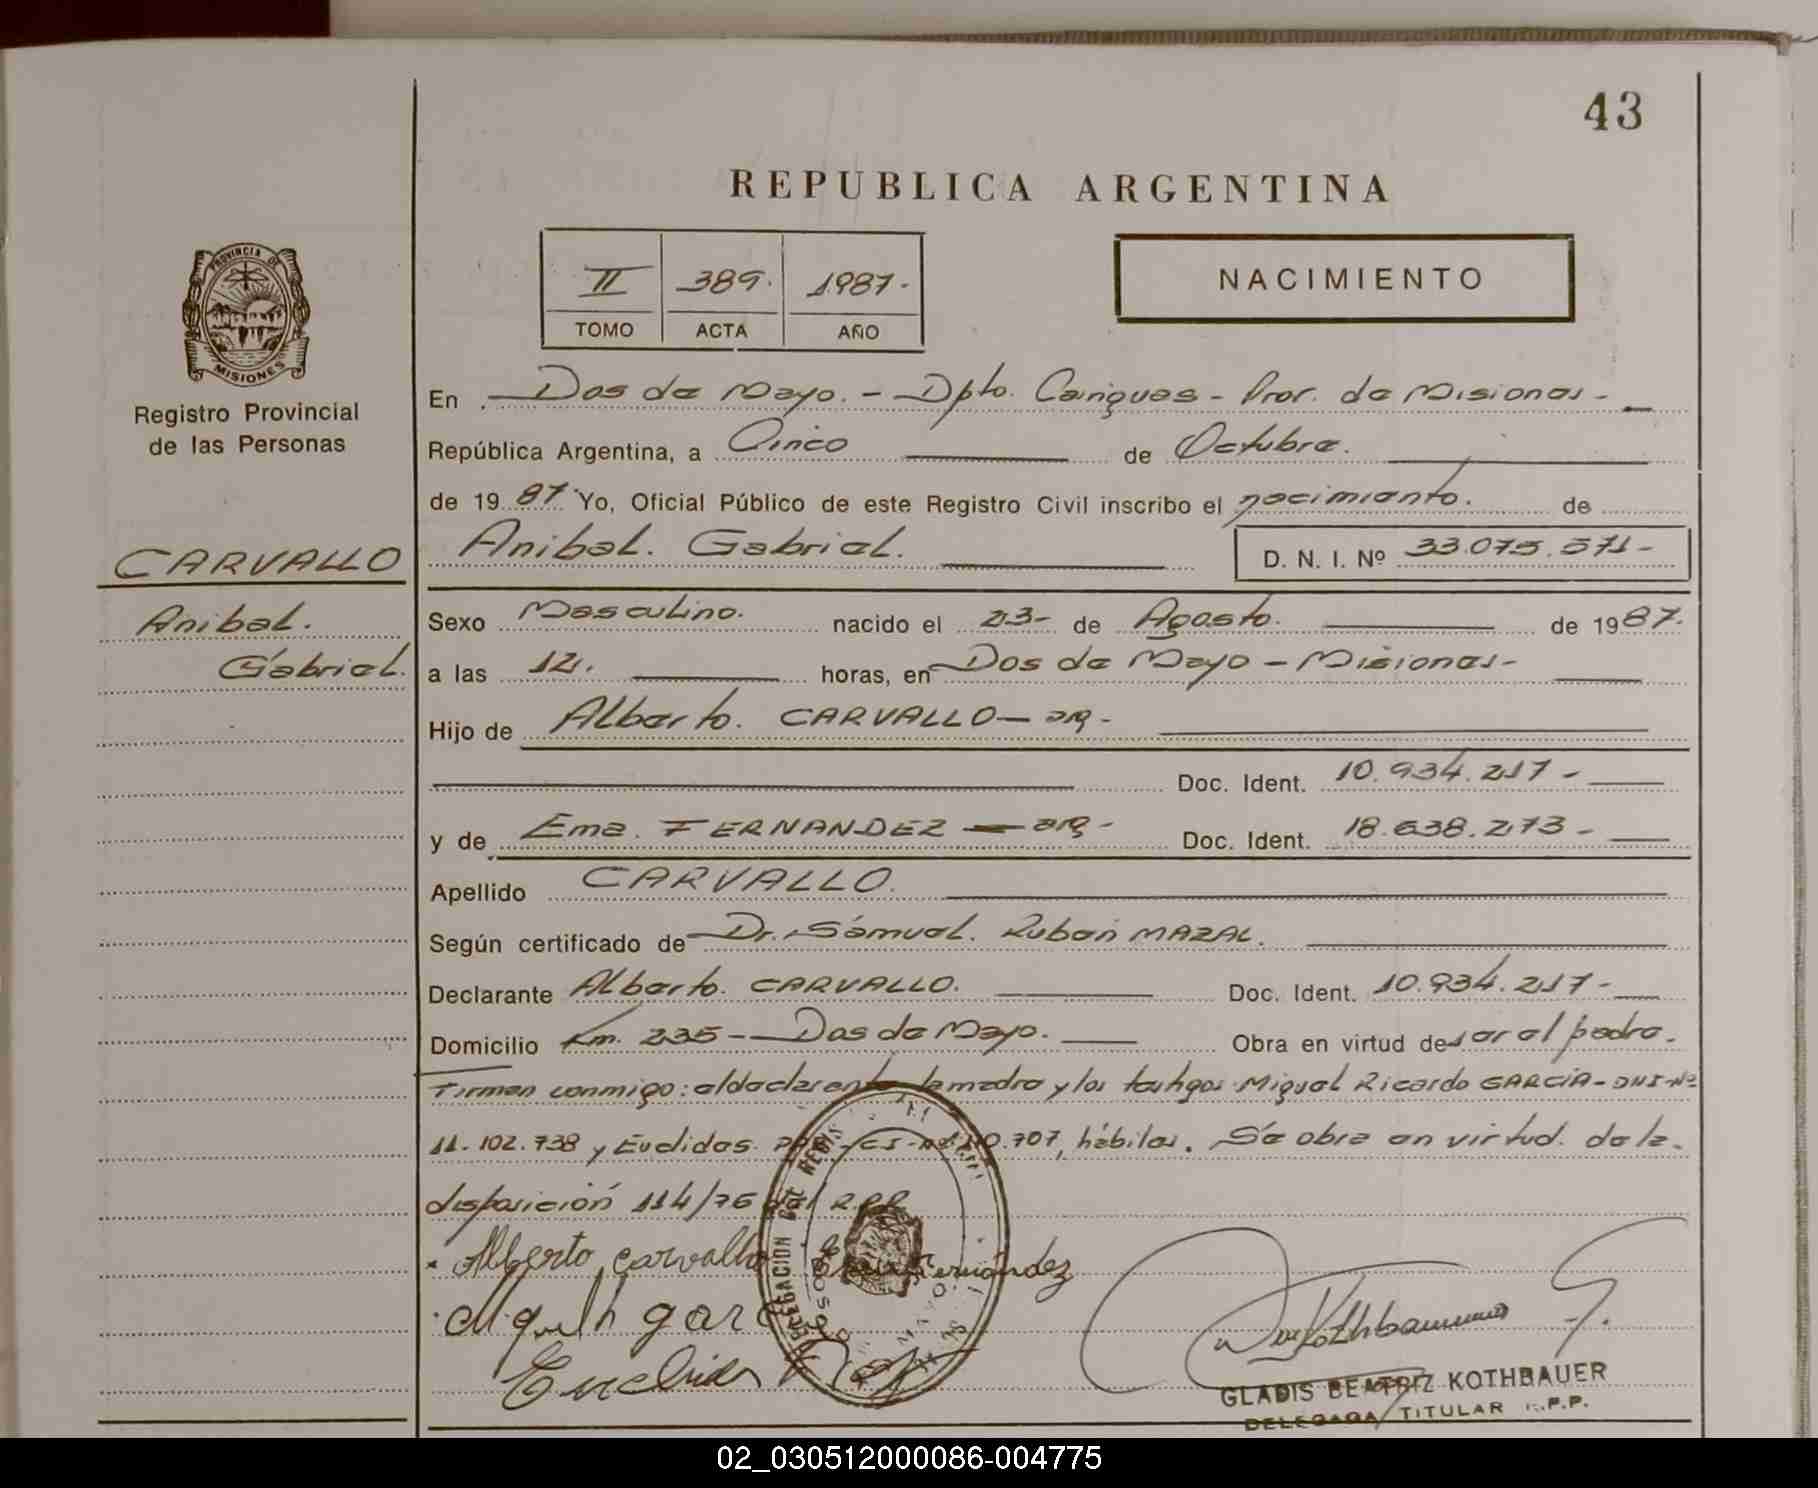 43
REPUBLICA ARGENTINA
II 389. 1987.
TOMO ACTA AÑO
NACIMIENTO
PROVINCIA DE
MISIONES
Registro Provincial
de las Personas
En Dos de Mayo. - Dpto. Cainguas - Prov. de Misiones -
República Argentina, a Cinco de Octubre.
de 1987. Yo, Oficial Público de este Registro Civil inscribo el nacimiento. de
CARVALLO
Anibal. Gabriel.
Anibal. Gabriel. D. N. I. Nº 33.075.571-
Sexo Masculino. nacido el 23- de Agosto. de 1987.
a las 12. horas, en Dos de Mayo - Misiones-
Hijo de Alberto. CARVALLO - arg-
Doc. Ident. 10.934.217-
y de Ema. FERNANDEZ - arg- Doc. Ident. 18.638.273-
Apellido CARVALLO.
Según certificado de Dr. Sámuel. Ruben MAZAL.
Declarante Alberto. CARVALLO. Doc. Ident. 10.934.217-
Domicilio Km. 235 - Dos de Mayo. Obra en virtud de ser el padre.
Firman conmigo: el declarante, la madre y los testigos Miguel Ricardo GARCIA - DNI-Nº
11.102.738 y Euclides. CI-Nº 707, hábiles. Se obra en virtud. de la
disposición 114/76 del R.P.P
Alberto Carvallo Fernández
Miguel garc
Euclides
DELEGACION DEL REGIS
Kothbauer G.
GLADIS BEATRIZ KOTHBAUER
DELEGADA TITULAR R.P.P.
02_030512000086-004775